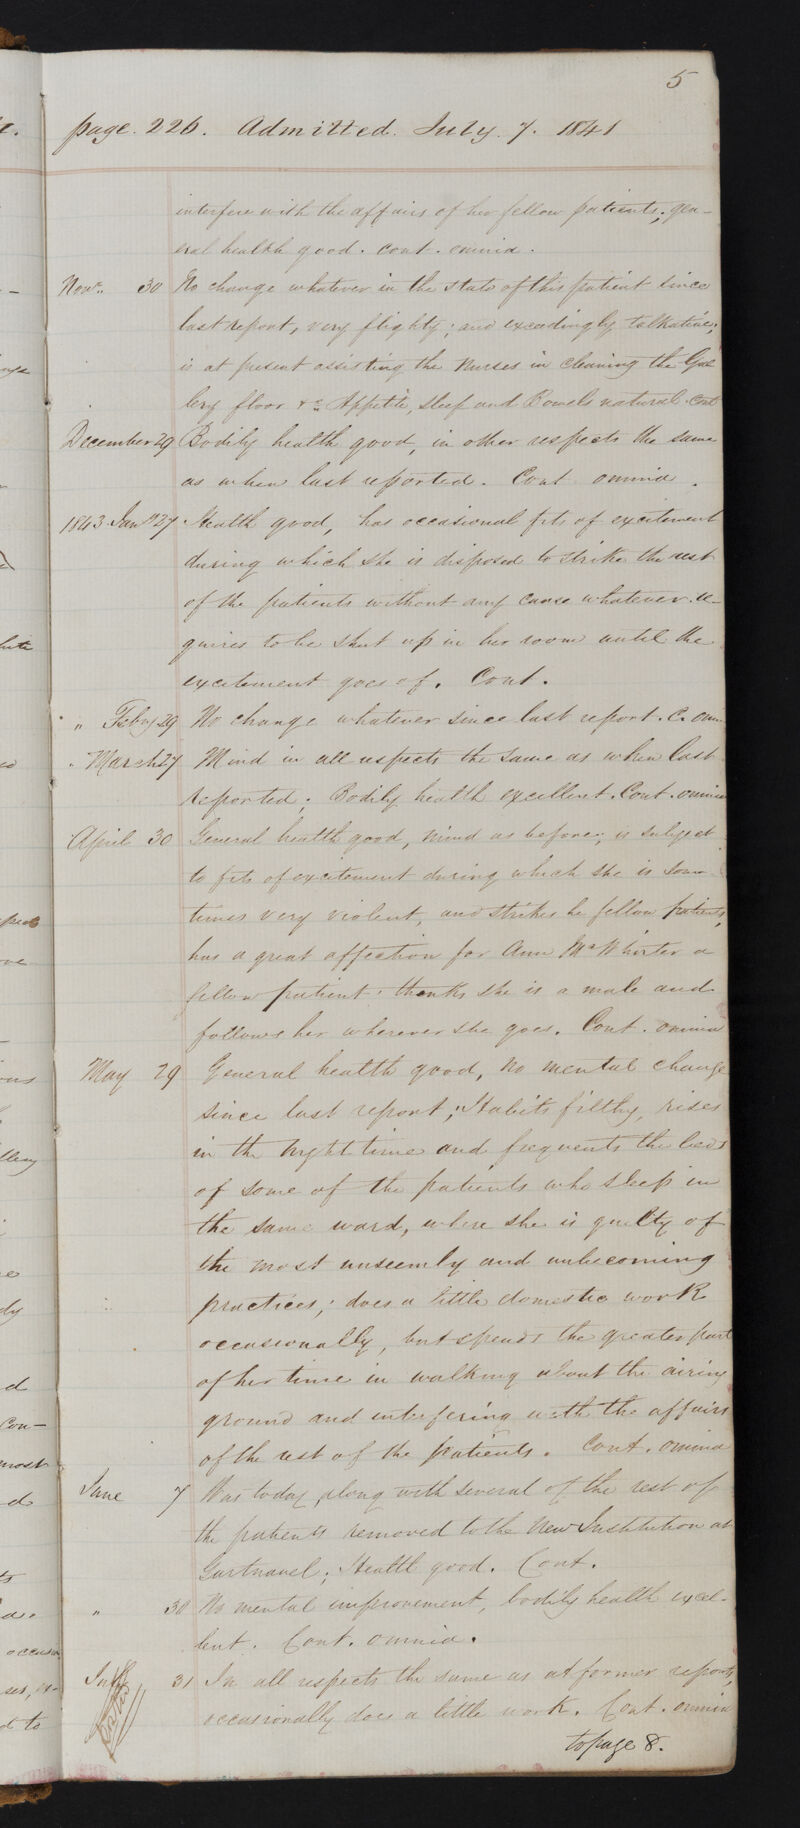 5
page. 226. Admitted. July. 7. 1841
interfere with the affairs of her fellow patients; gen-
eral health good. cont. omnia.
Novr. 30 No change whatever in the state of this patient since
last report, very flighty; and exceedingly talkative;
is at present assisting the Nurses in cleaning the Gal
lery floor &c. Appetite, sleep and Bowels natural. Cont
December 29 Bodily health good, in other respects the same
as when last reported. Cont omnia.
1843 Jany 27 Health good, has occasional fits of excitement
during which she is disposed to strike the rest
of the patients without any cause whatever. re-
quires to be shut up in her room until the
excitement goes of. Cont.
" Feby 29 No change whatever since last report. C. omn
" March 27 Mind in all respects the same as when last
reported; Bodily health excellent. Cont. omnia
April 30 General health good, mind as before; is subject
to fits of excitement during which she is some-
times very violent, and strikes he fellow patients,
has a great affection for Ann McWhirter a
fellow patient. thinks she is a male and
follows her wherever she goes. Cont. omnia
May 29 General health good, no mental change
since last report; Habits filthy, rises
in the night time and frequents the beds
of some of the patients who sleep in
the same ward, where she is guilty of
the most unseemly and unbecoming
practices; does a little domestic work
occasionally, but spends the greater part
of her time in walking about the airing
ground and interfering with the affairs
of the rest of the patients. Cont. omnia
June 7 Was today along with several of the rest of
the patients removed to the New Institution at
Gartnavel; Health good. Cont.
" 30 No mental improvement, bodily health excel-
lent. Cont. omnia.
July 31 In all respects the same as at former reports,
occasionally does a little work. Cont. omnia
to page 8.